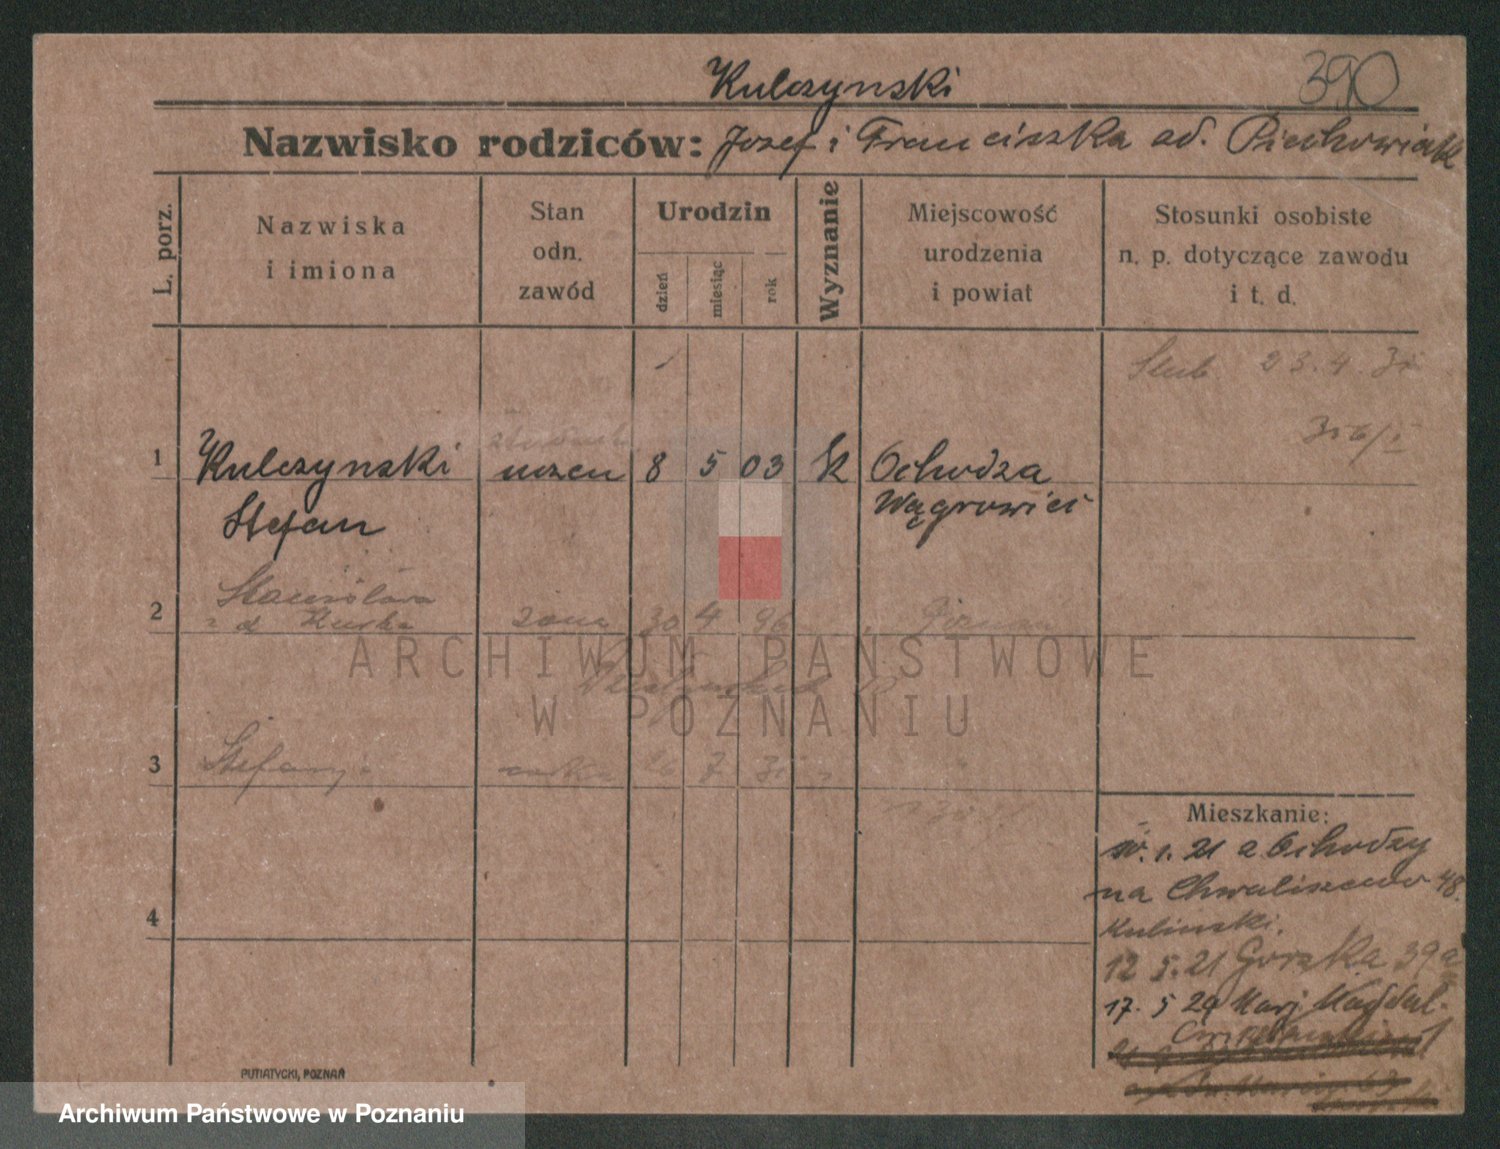 390
Kulczynski
Nazwisko rodziców: Jozef i Franciszka od. Piechowiak
L. porz.
Nazwiska
i imiona
Stan
odn.
zawód
Urodzin
dzień
miesiąc
rok
Wyznanie
Miejscowość
urodzenia
i powiat
Stosunki osobiste
n. p. dotyczące zawodu
i t. d.
Slub 23.4.31
1 Kulczynski uczen 8 5 03 k Ochodza
Stefan Wągrowiec
Stanisława
2 z d żona 30 4 96 Poznań
3 Stefanja córka 7
4
Mieszkanie:
1. 21 z Ochodzy
na Chwaliszewo 48.
Kulinski.
12 5. 21 Gorzka 39a
17. 5 24 Marj Magdal.
PUTIATYCKI, POZNAŃ
ARCHIWUM PAŃSTWOWE
W POZNANIU
Archiwum Państwowe w Poznaniu